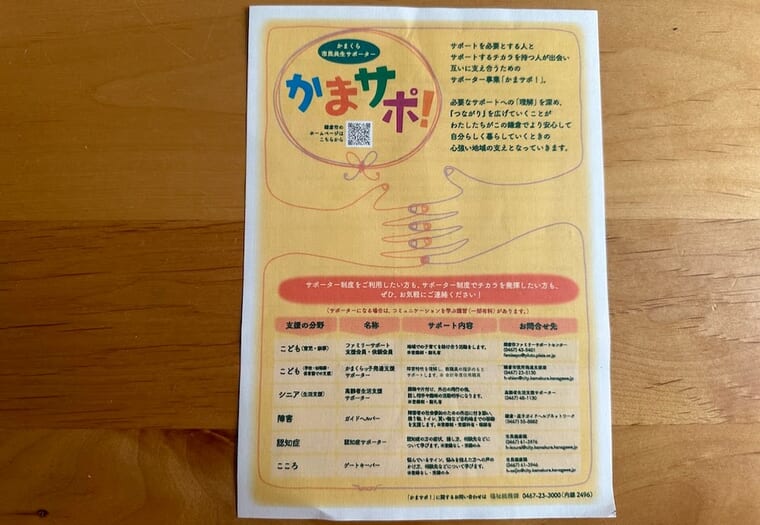 かまくら
市民共生サポーター
かまサポ!
鎌倉市の
ホームページは
こちらから
サポートを必要とする人と
サポートするチカラを持つ人が出会い
互いに支え合うための
サポーター事業「かまサポ!」。
必要なサポートへの「理解」を深め、
「つながり」を広げていくことが
わたしたちがこの鎌倉でより安心して
自分らしく暮らしていくときの
心強い地域の支えとなっていきます。
サポーター制度をご利用したい方も、サポーター制度でチカラを発揮したい方も、
ぜひ、お気軽にご連絡ください!
(サポーターになる場合は、コミュニケーションを学ぶ講習(一部有料)があります。)
支援の分野 名称 サポート内容 お問合せ先
こども(育児・家事) ファミリーサポート
支援会員・依頼会員 地域での子育てを助け合う活動をします。
こども かまくらっ子発達支援
サポーター
シニア(生活支援) 高齢者生活支援
サポーター 高齢者生活支援サポーター
(0467) 48-1130
障害 ガイドヘルパー
認知症 認知症サポーター 認知症の方の症状、接し方、相談先などに
ついて学びます。
こころ ゲートキーパー 悩んでいるサイン、悩みを抱えた方への声の
かけ方、相談先などについて学びます。
「かまサポ!」に関するお問い合わせは 福祉総務課 0467-23-3000(内線 2496)